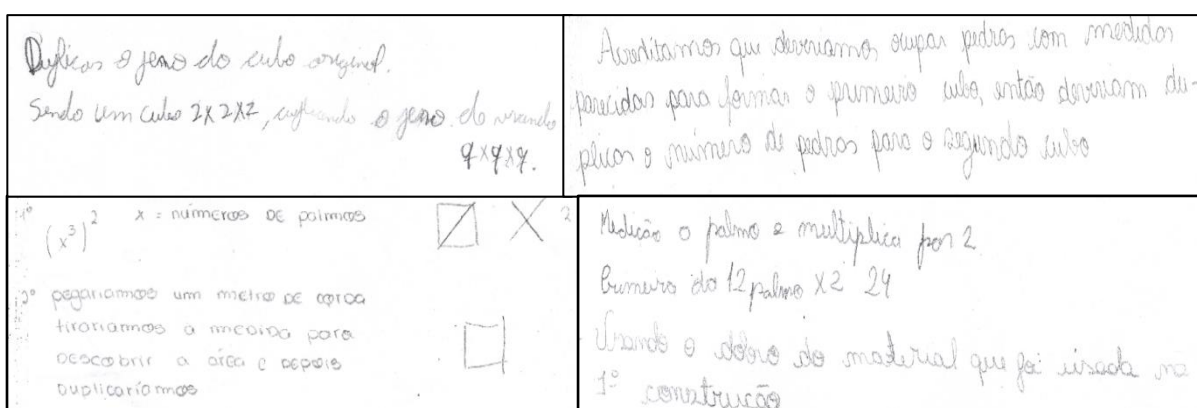 Duplicar o peso do cubo original.
Sendo um cubo 2x2x2, o peso do
4x4x4.
Acreditamos que deveriamos ocupar pedras com medidas
parecidas para formar o primeiro cubo, então deveriam du-
plicar o número de pedras para o segundo cubo
1º (x³)² x = números de palmos 2
2º pegariamos um metro de corda
tirariamos a medida para
descobrir a área e depois
duplicaríamos
Medição o palmo e multiplica por 2
Primeiro do 12 palmo x2 24
Usando o dobro do material que foi usada na
1º construção